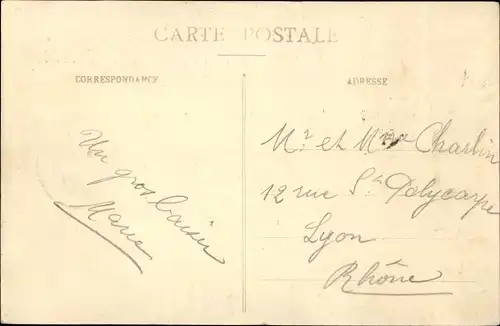 CARTE POSTALE
CORRESPONDANCE
ADRESSE
Un gros baiser
Marie
Mr et Mme Charlin
12 rue St Polycarpe
Lyon
Rhône